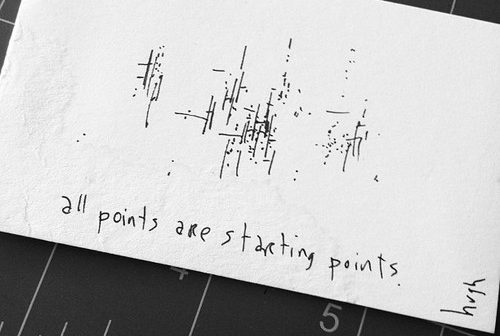 all points are starting points.
hugh
4
5